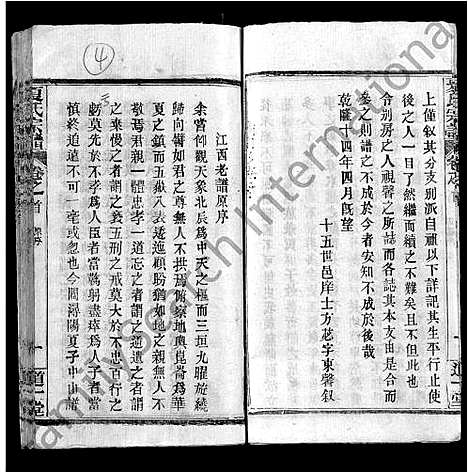 上僅叙其分支别派自祖以下詳記其生平行止使
後之人一目了然繼而續之不難矣且不但此也
令别房之人視馨之所誌而各誌其本支由是合而
叅之則譜之不成於今者安知不成於後哉
乾隆十四年四月既望
十五世邑庠士方苾字東馨叙
道一堂
④
夏氏宗譜
卷之首
江西老譜原序
余嘗仰觀天象北辰爲中天之極而三垣九曜旋繞
歸向譬如君之尊無人不拱焉俯察地輿崑崙爲華
夏之鎮而五嶽
之親無人不
敬焉君親一體忠孝一道忘之者謂之逆違之者謂
之棄慢之者謂之褻五刑之戒莫大於不忠百行之
吳先於不孝爲人臣者當鞠躬盡瘁爲人子者當
慎終追遠不可一毫或忽也今閱潯陽夏子中山譜
一
道一堂
FamilySearch International